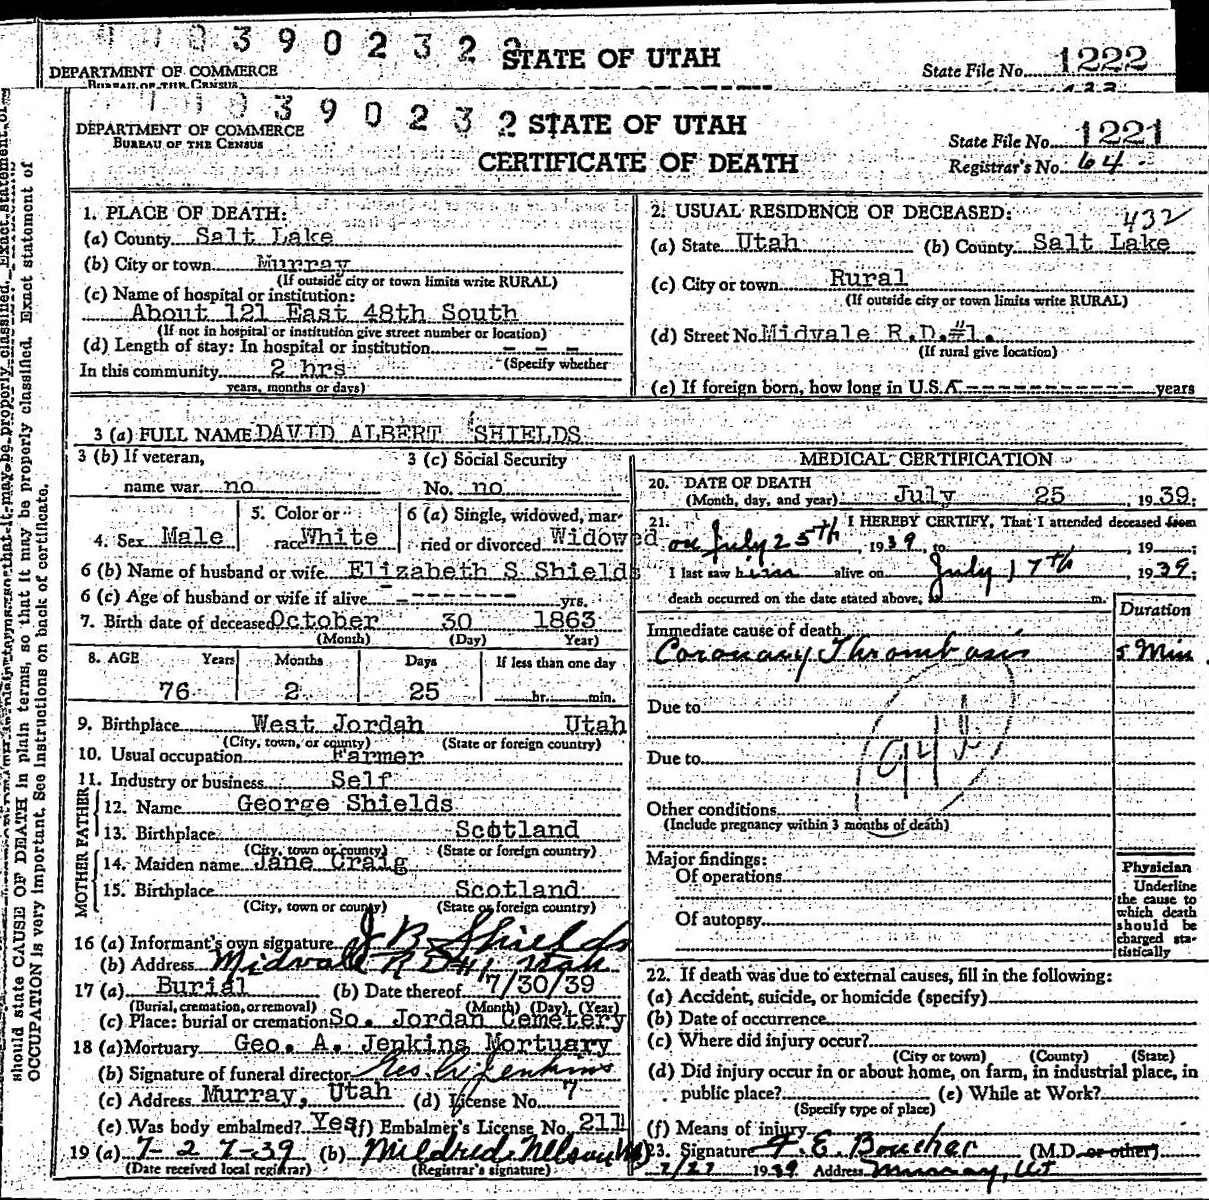 3 9 0 2 3 2 2
STATE OF UTAH
DEPARTMENT OF COMMERCE
BUREAU OF THE CENSUS
State File No. 1222
3 9 0 2 3 2
STATE OF UTAH
DEPARTMENT OF COMMERCE
BUREAU OF THE CENSUS
CERTIFICATE OF DEATH
State File No. 1221
Registrar's No. 64
should state CAUSE OF DEATH in plain terms, so that it may be properly classified. Exact statement of
OCCUPATION is very important. See instructions on back of certificate.
1. PLACE OF DEATH:
(a) County Salt Lake
(b) City or town Murray
(If outside city or town limits write RURAL)
(c) Name of hospital or institution:
About 121 East 48th South
(If not in hospital or institution give street number or location)
(d) Length of stay: In hospital or institution - - -
(Specify whether
In this community 2 hrs
years, months or days)
2. USUAL RESIDENCE OF DECEASED:
432
(a) State Utah (b) County Salt Lake
(c) City or town Rural
(If outside city or town limits write RURAL)
(d) Street No Midvale R.D.#1.
(If rural give location)
(e) If foreign born, how long in U.S.A. ------------ years
3 (a) FULL NAME DAVID ALBERT SHIELDS
3 (b) If veteran, 3 (c) Social Security
name war no No. no
4. Sex Male 5. Color or race White 6 (a) Single, widowed, married or divorced Widowed
6 (b) Name of husband or wife Elizabeth S. Shields
6 (c) Age of husband or wife if alive -------- yrs.
7. Birth date of deceased October 30 1863
(Month) (Day) Year)
8. AGE Years Months Days If less than one day
76 2 25 hr. min.
9. Birthplace West Jordan Utah
(City, town, or county) (State or foreign country)
10. Usual occupation Farmer
11. Industry or business Self
FATHER
12. Name George Shields
13. Birthplace Scotland
(City, town or county) (State or foreign country)
MOTHER
14. Maiden name Jane Craig
15. Birthplace Scotland
(City, town or county) (State or foreign country)
16 (a) Informant's own signature J B Shields
(b) Address Midvale R D #1 Utah
17 (a) Burial (b) Date thereof 7/30/39
(Burial, cremation, or removal) (Month) (Day), (Year)
(c) Place: burial or cremation So. Jordan Cemetery
18 (a) Mortuary Geo. A. Jenkins Mortuary
(b) Signature of funeral director Geo. A. Jenkins
(c) Address Murray, Utah (d) License No. 7
(e) Was body embalmed? Yes (f) Embalmer's License No. 211
19 (a) 7-27-39 (b) Mildred Nelson
(Date received local registrar) (Registrar's signature)
MEDICAL CERTIFICATION
20. DATE OF DEATH
(Month, day, and year) July 25, 1939;
21. I HEREBY CERTIFY, That I attended deceased from
on July 25th, 1939, to , 19 ;
I last saw him alive on July 17th, 1939;
death occurred on the date stated above, m.
Duration
Immediate cause of death
Coronary Thrombosis 5 Min
Due to
Due to
94b
Other conditions
(Include pregnancy within 3 months of death)
Major findings:
Of operations
Of autopsy
Physician
Underline
the cause to
which death
should be
charged sta-
tistically
22. If death was due to external causes, fill in the following:
(a) Accident, suicide, or homicide (specify)
(b) Date of occurrence
(c) Where did injury occur?
(City or town) (County) (State)
(d) Did injury occur in or about home, on farm, in industrial place, in
public place? (e) While at Work?
(Specify type of place)
(f) Means of injury
23. Signature F. E. Boucher (M.D. or other)
7/27 1939 Address Murray, Ut